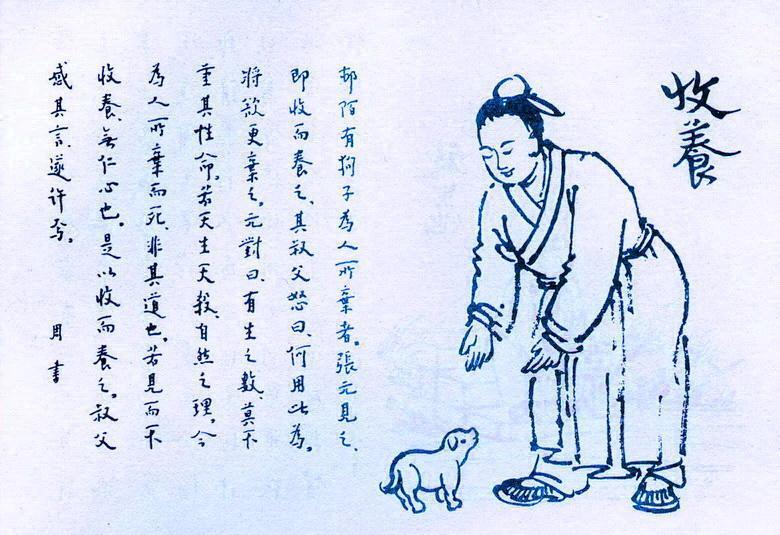 收養
邨陌有狗子為人所棄者。張元見之、
即收而養之、其叔父怒曰、何用此為。
將欲更棄之。元對曰、有生之類、莫不
重其性命。若天生天殺、自然之理。今
為人所棄而死、非其道也。若見而不
收養、無仁心也。是以收而養之。叔父
感其言、遂許焉。
周書